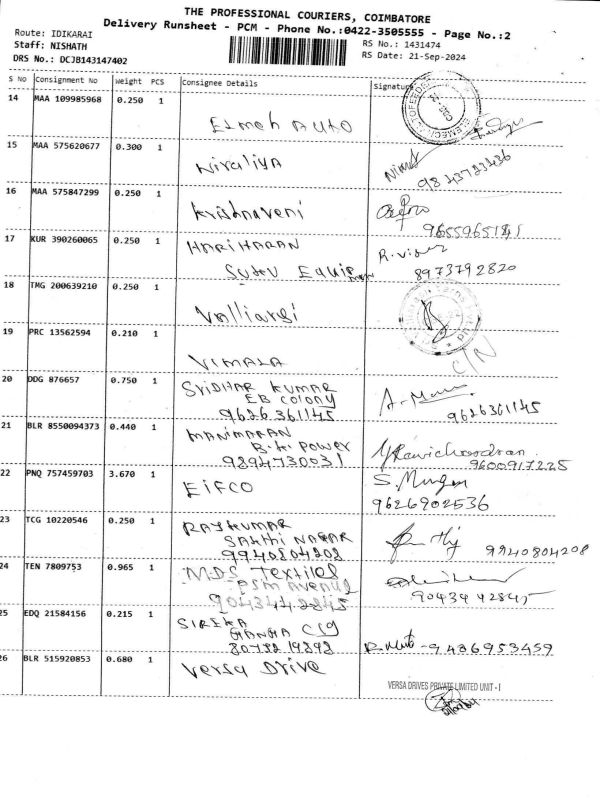 THE PROFESSIONAL COURIERS, COIMBATORE
Delivery Runsheet - PCM - Phone No.:0422-3505555 - Page No.:2
Route: IDIKARAI
Staff: NISHATH
DRS No.: DCJB143147402
RS No.: 1431474
RS Date: 21-Sep-2024
S No Consignment No Weight PCS Consignee Details Signature
14 MAA 109985968 0.250 1
Elmeh Auto
15 MAA 575620677 0.300 1
Niraliya
9843783486
16 MAA 575847299 0.250 1
Krishnaveni
9655965181
17 KUR 390260065 0.250 1 HARIHARAN
R. 8973792820
18 TMG 200639210 0.250 1
Valliarasi
19 PRC 13562594 0.210 1
VIMALA
C/N
20 DDG 876657 0.750 1 SRIDHAR KUMAR
EB COLONY
9626361145 9626361145
21 BLR 8550094373 0.440 1 MANIMARAN
B.H. POWER
9894730031 9600917225
22 PNQ 757459703 3.670 1 EIFCO
S. Murugan
9626902536
23 TCG 10220546 0.250 1 RAJKUMAR
SAKTHI NAGAR
9940804208 9940804208
24 TEN 7809753 0.965 1 MDS Textiles
PSM Avenue
9043442845 9043442845
25 EDQ 21584156 0.215 1 SIREKA
9486953459
26 BLR 515920853 0.680 1 Versa Drive
VERSA DRIVES PRIVATE LIMITED UNIT - I